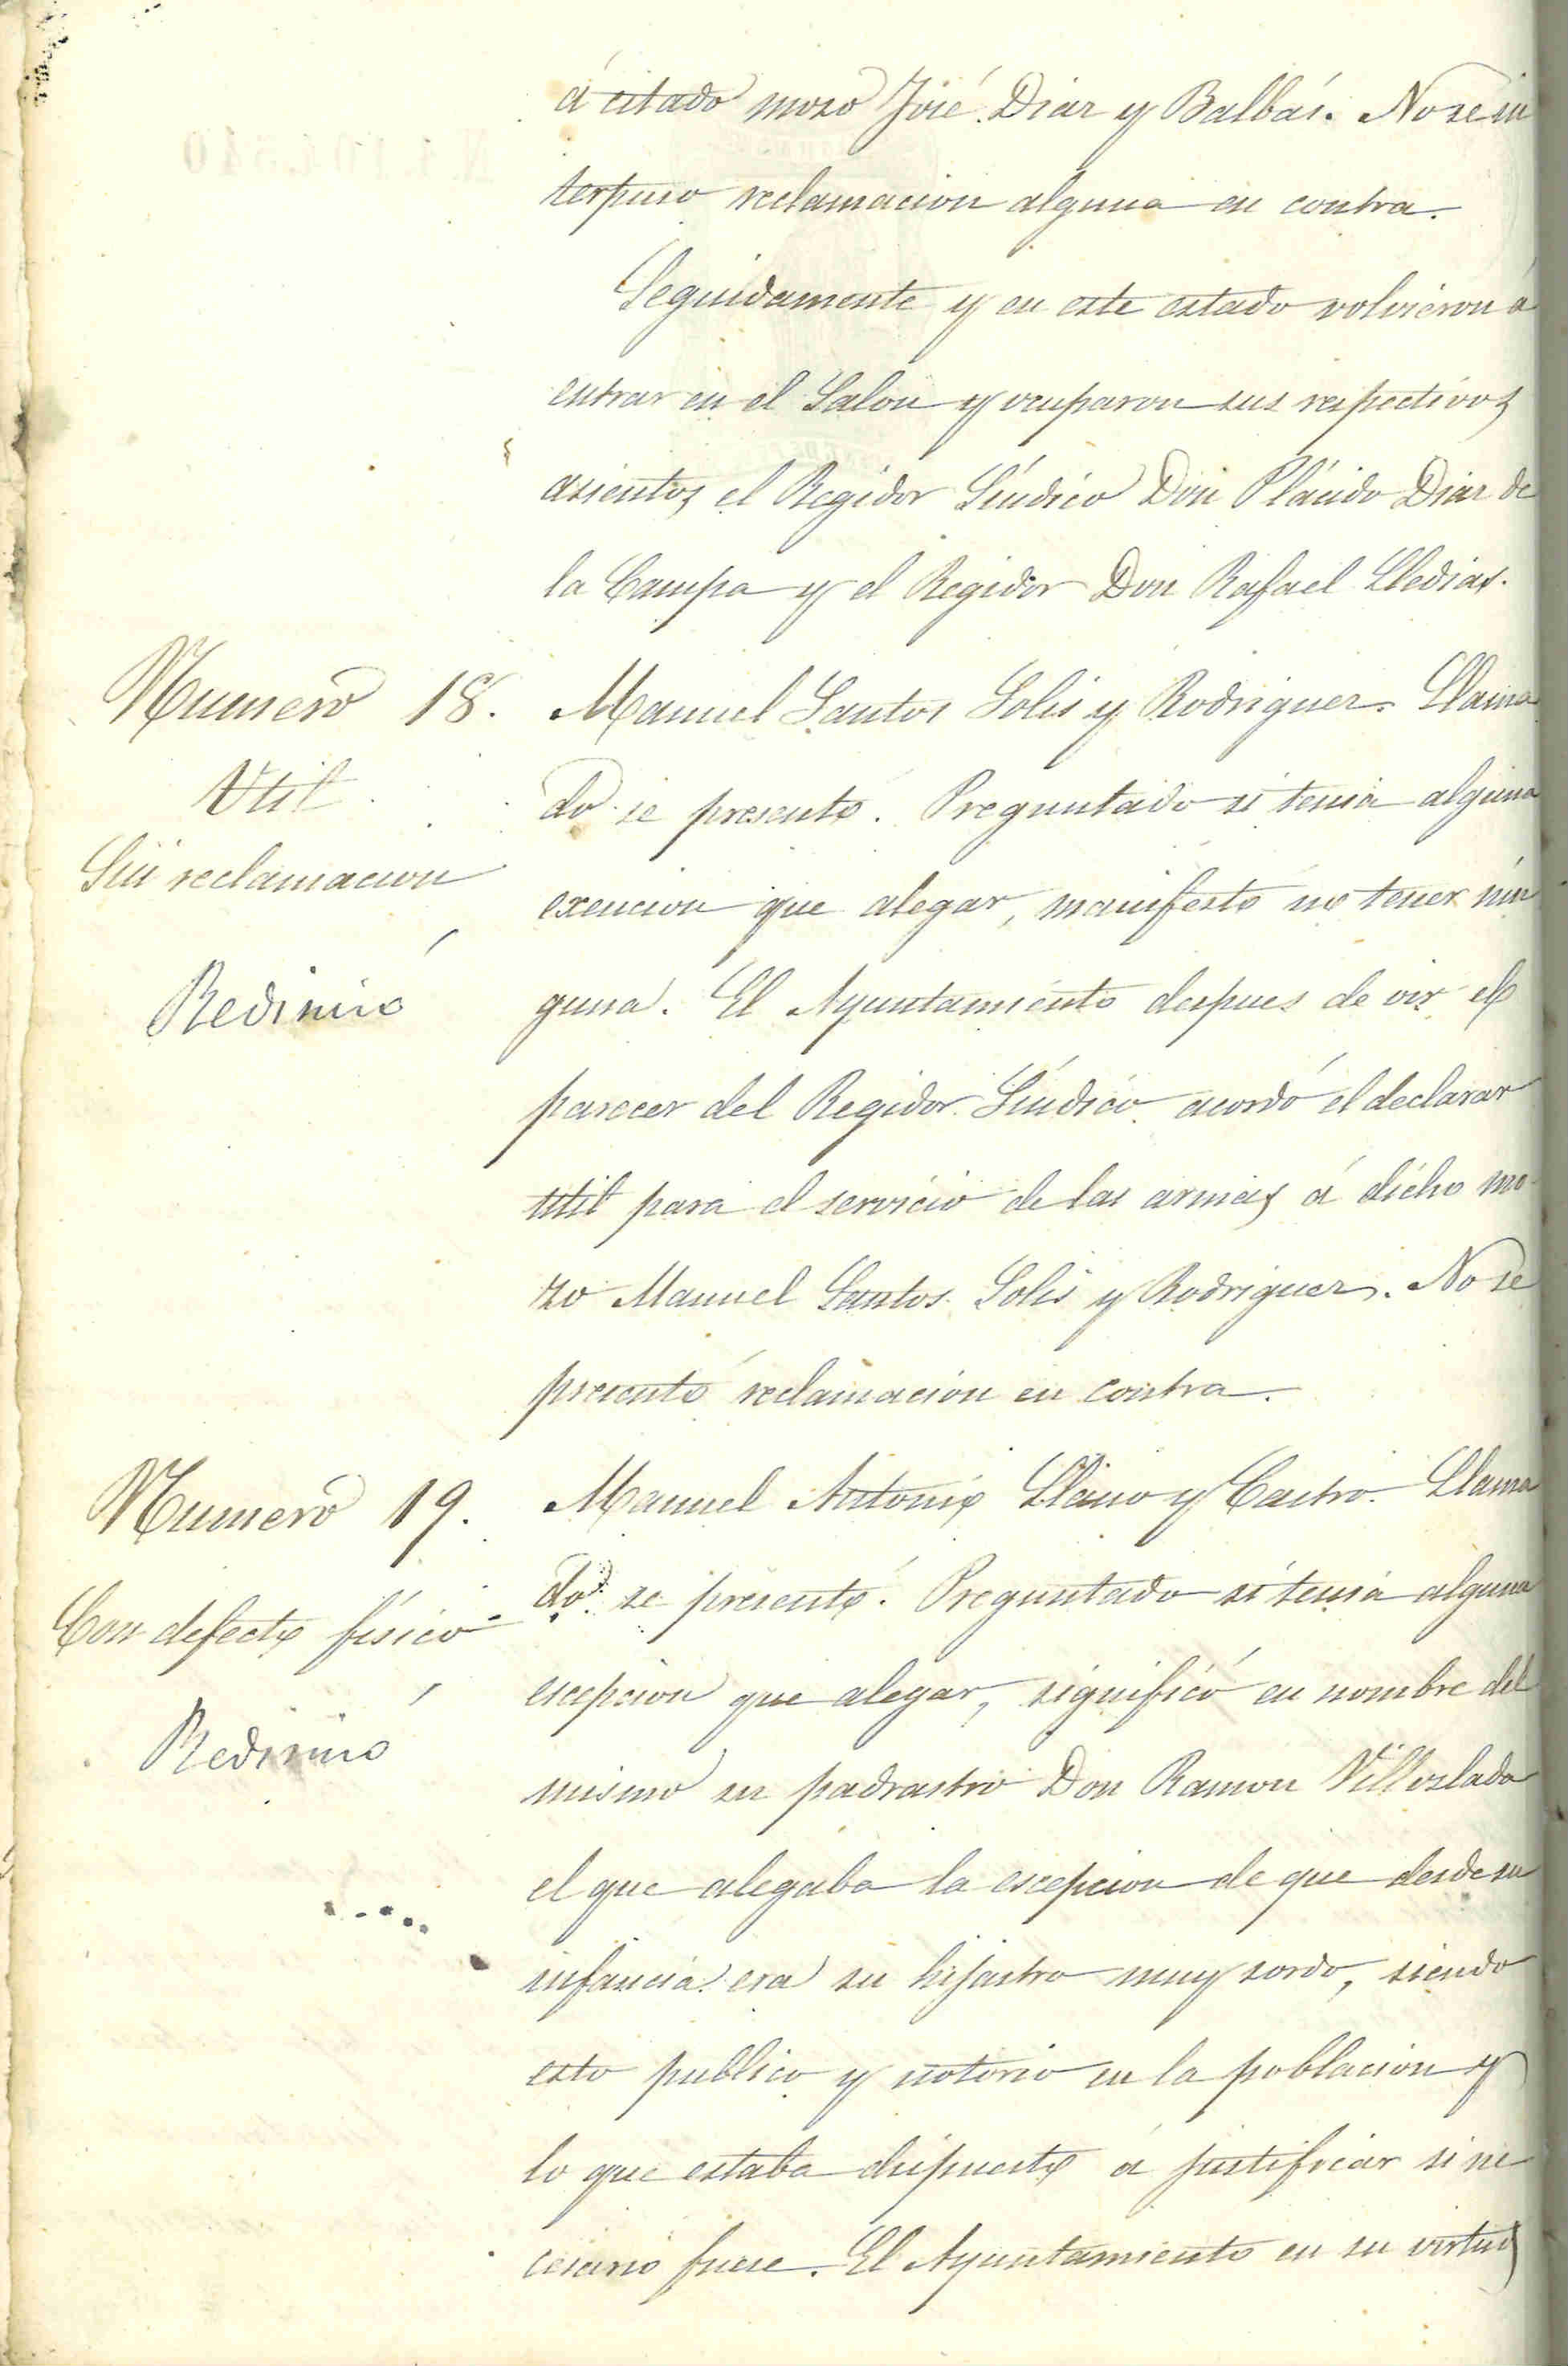 á citado mozo José Diaz y Balbás. No se in
terpuso reclamacion alguna en contra.
Seguidamente y en este estado volvieron á
entrar en el Salon y ocuparon sus respectivos
asientos el Regidor Síndico Don Plácido Diaz de
la Campa y el Regidor Don Rafael Lledias.
Numero 18.
Util
Sin reclamacion
Redimió
Manuel Santos Solis y Rodriguez. Llama
do se presentó. Preguntado si tenia alguna
exencion que alegar, manifestó no tener nin
guna. El Ayuntamiento despues de oir el
parecer del Regidor Síndico acordó el declarar
util para el servicio de las armas á dicho mo-
zo Manuel Santos Solis y Rodriguez. No se
presentó reclamacion en contra.
Numero 19.
Con defecto físico
Redimió
Manuel Antonio Llano y Castro. Llama
do se presentó. Preguntado si tenia alguna
escepcion que alegar, significó en nombre del
mismo su padrastro Don Ramon Villoslada
el que alegaba la escepcion de que desde su
infancia era su hijastro muy sordo, siendo
esto publico y notorio en la poblacion y
lo que estaba dispuesto á justificar si ne
cesario fuese. El Ayuntamiento en su virtud